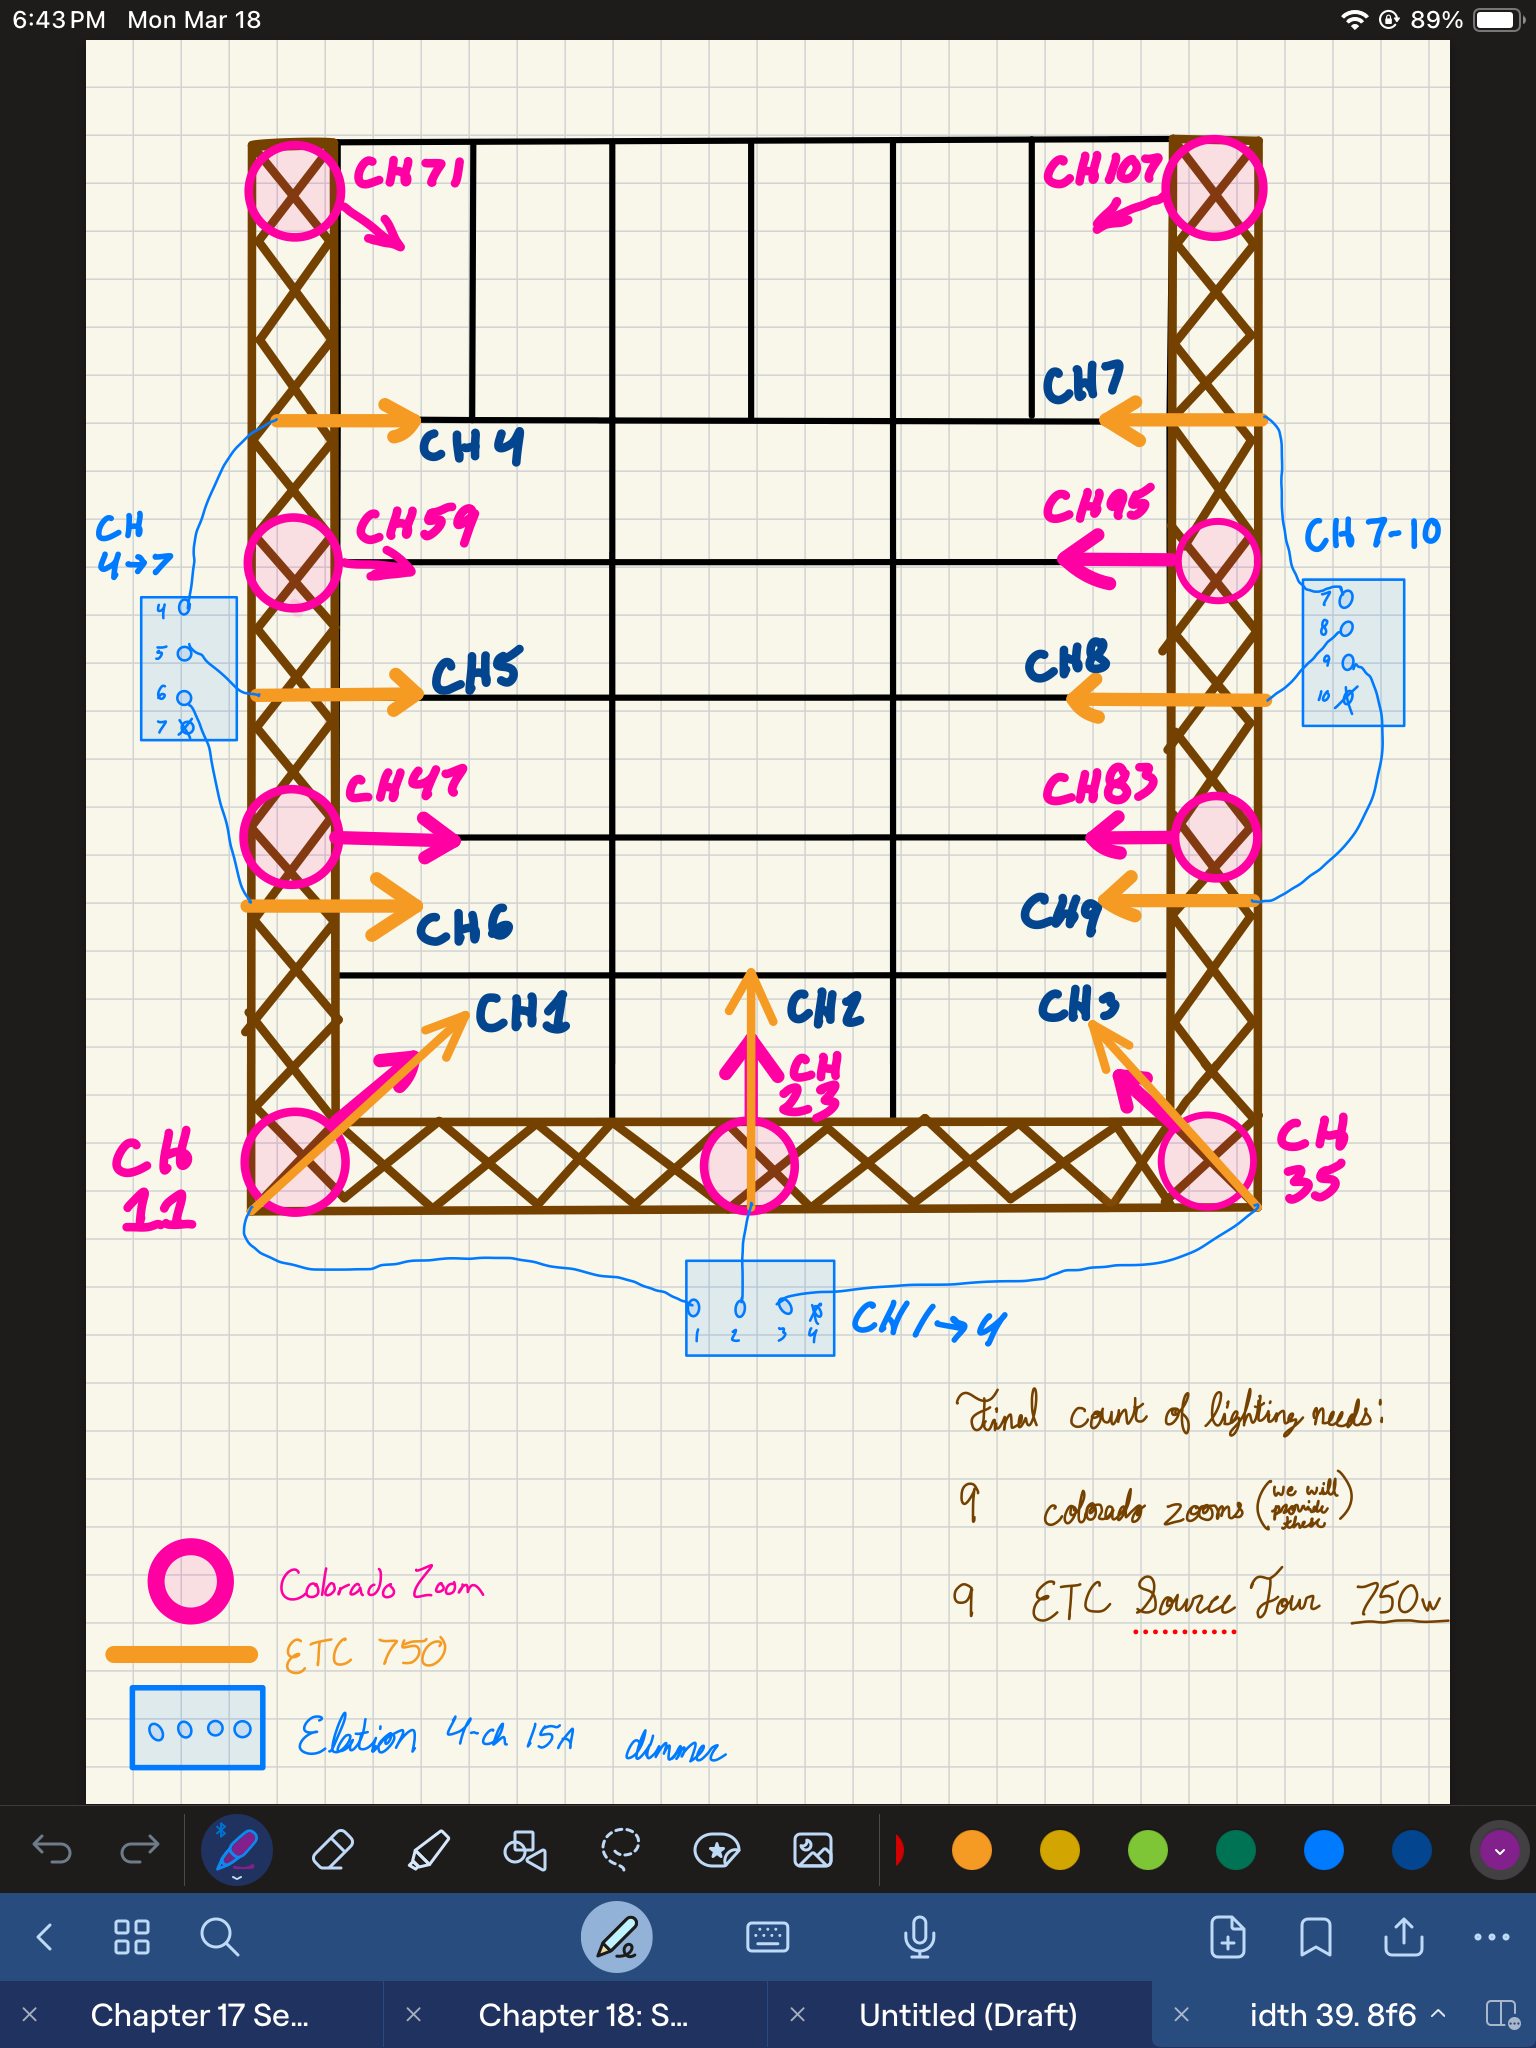 6:43 PM Mon Mar 18
89%
CH 71
CH107
CH7
CH 4
CH59
CH95
CH
4→7
CH 7-10
4
5
6
7
7
8
9
10
CH5
CH8
CH47
CH83
CH6
CH9
CH1
CH2
CH3
CH
23
CH
11
CH
35
1 2 3 4
CH 1→4
Final count of lighting needs:
9 colorado zooms (we will
provide
these)
9 ETC Source Four 750w
Colorado Zoom
ETC 750
Elation 4-ch 15A dimmer
Chapter 17 Se...
Chapter 18: S...
Untitled (Draft)
idth 39. 8f6